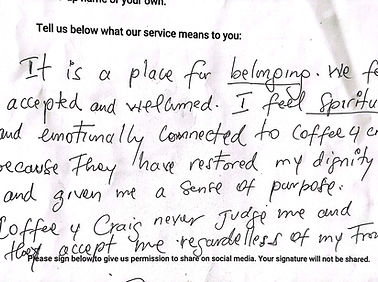 up name of your own.
Tell us below what our service means to you:
It is a place for belonging. We fe
accepted and welcomed. I feel Spiritu
and emotionally connected to Coffee 4 C
because They have restored my dignity
and given me a sense of purpose.
Coffee 4 Craig never Judge me and
they accept me regardless of my
Please sign below to give us permission to share on social media. Your signature will not be shared.